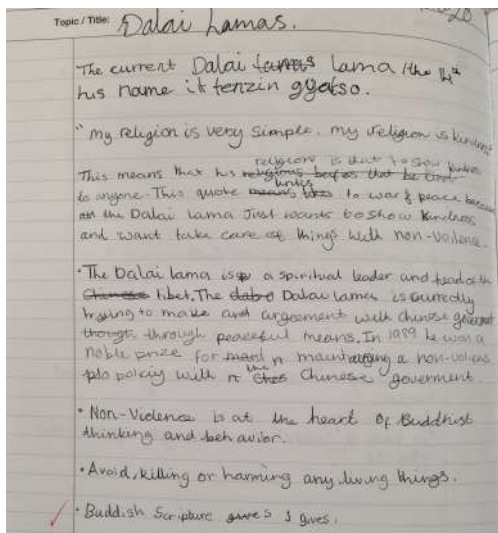 Topic / Title: Dalai Lamas.
The current Dalai Lamas Lama the 14th
his name it tenzin gyatso.
"my religion is very simple. my religion is kindness
religion is that to show kindness
This means that his religious that be kind
links
to anyone. This quote means to war & peace because
all the Dalai Lama Just wants to show kindness
and want take care of things with non-voilence.
• The Dalai lama is a spiritual leader and head of th
Chinese tibet. The Dalai Lamas is currently
trying to make and argeement with chinese goverment
though through peaceful means. In 1989 he won a
noble prize for maintaining a non-voilence
policiy with the Chinese goverment.
• Non-Violence is at the heart Of Buddhist
thinking and behavior.
• Avoid, killing or harming any living things.
• Buddish Scripture gives